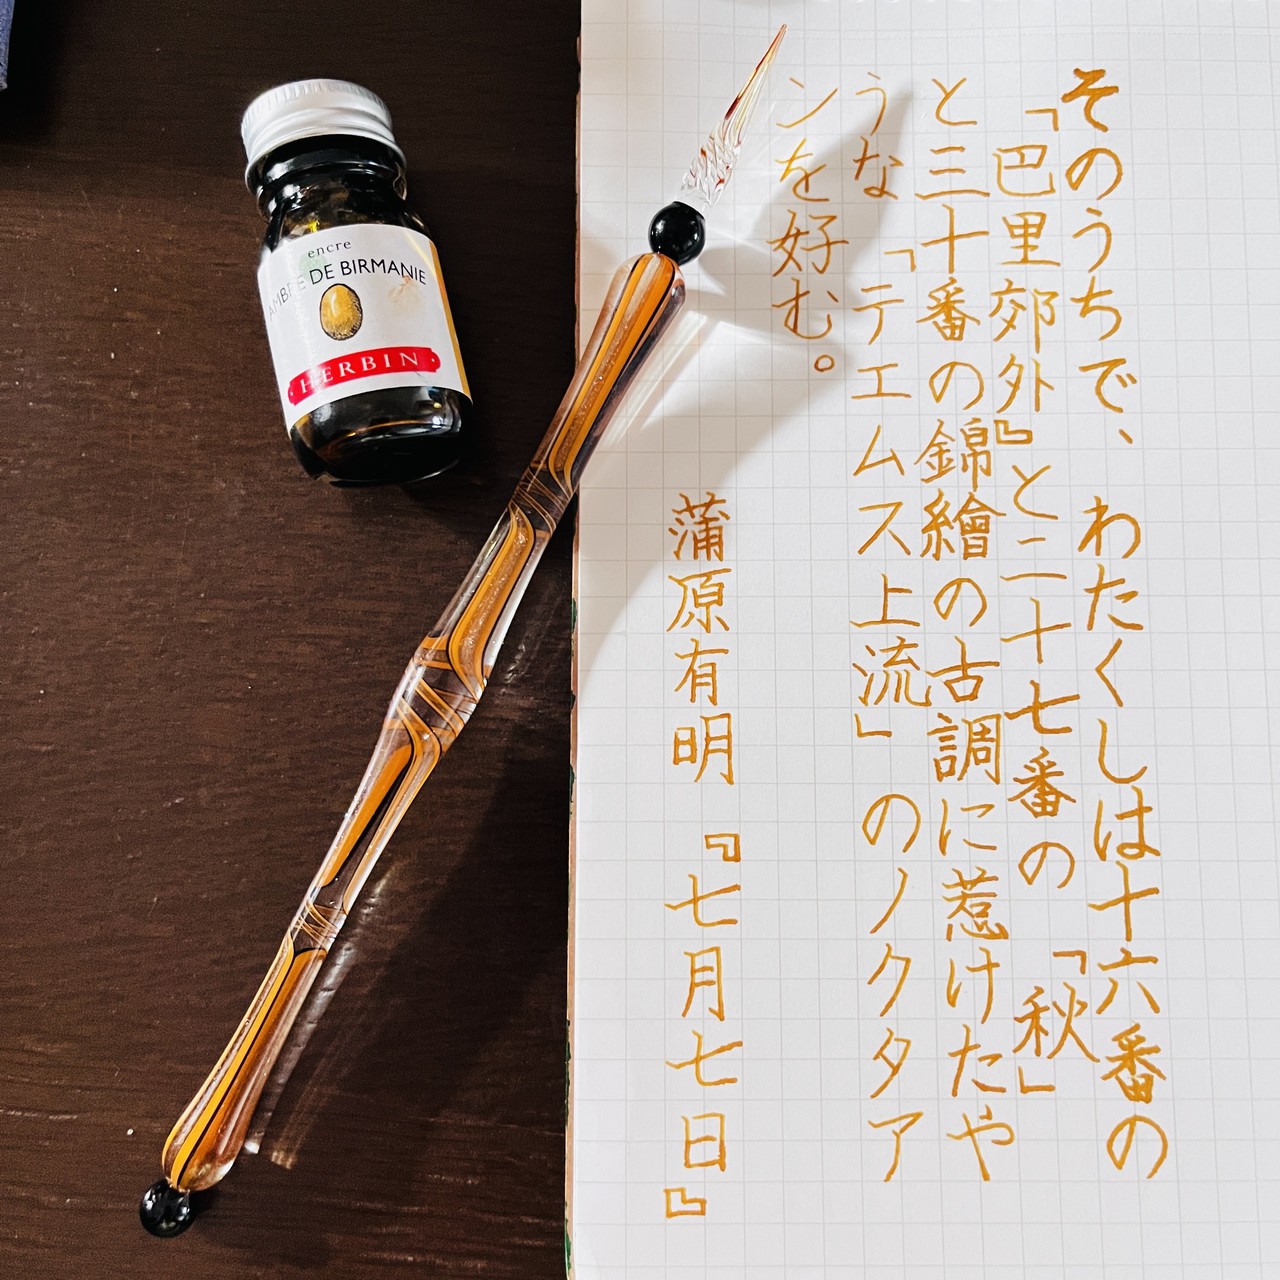 encre
AMBRE DE BIRMANIE
HERBIN
そのうちで、わたくしは十六番の
「巴里郊外』と二十七番の「秋」
と三十番の錦繪の古調に惹けたや
うな「テエムス上流」のノクタア
ンを好む。
蒲原有明『七月七日』